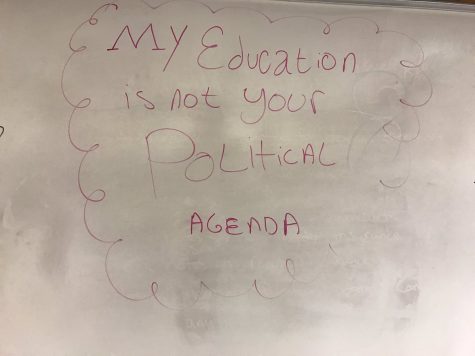 My Education
is not your
Political
AGENDA